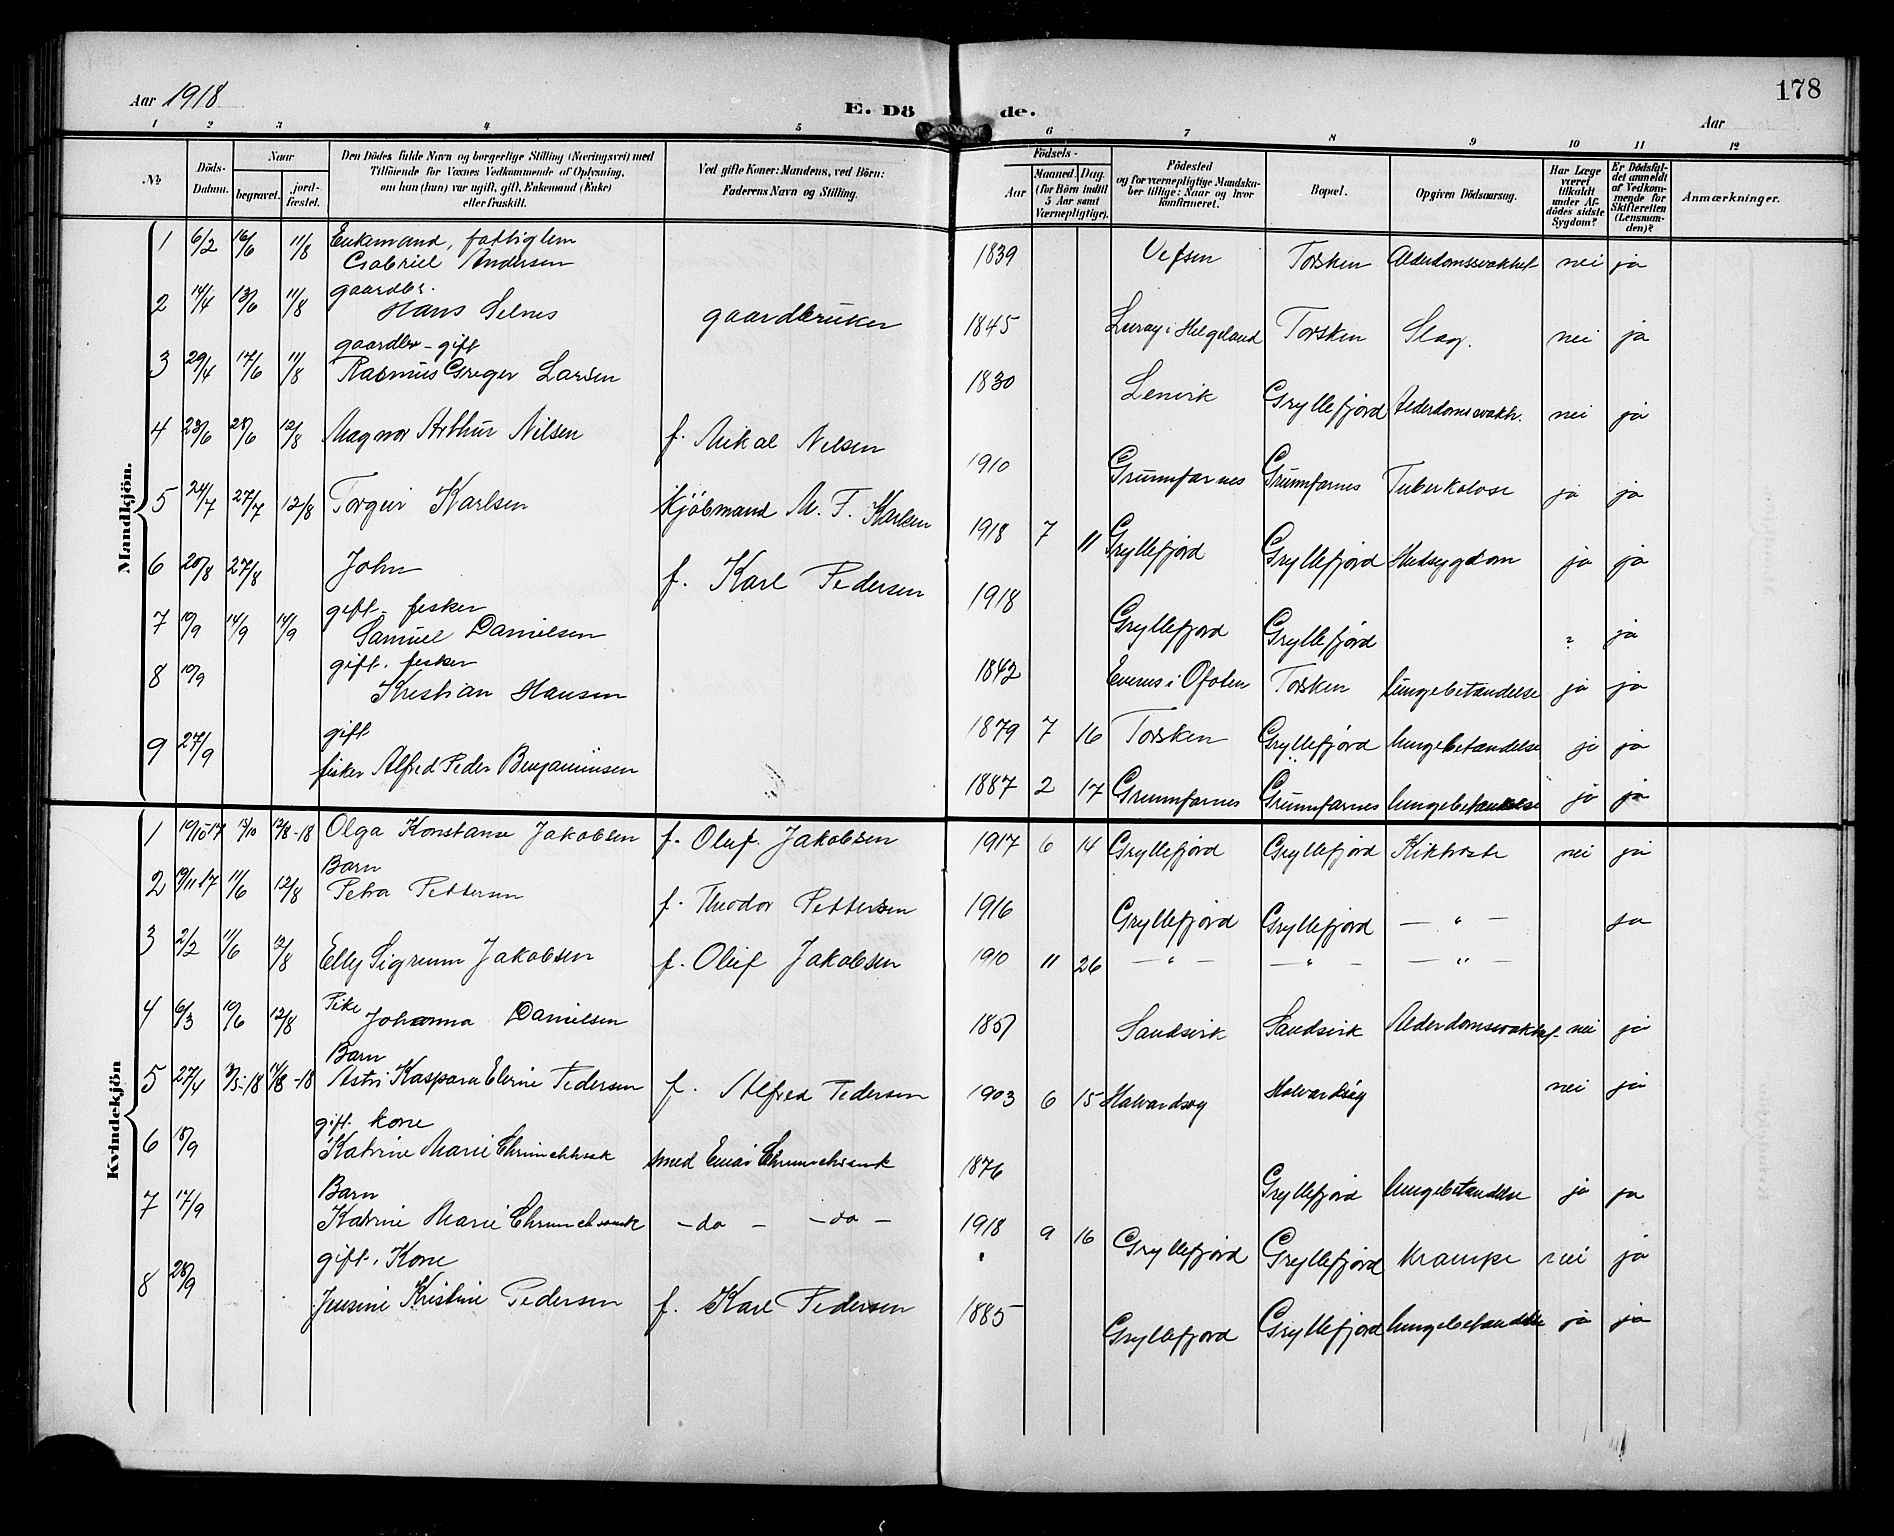 Aar 1918
E. Dö de.
178
Aar
1 2 3 4 5 6 7 8 9 10 11 12
№
Döds-Datum.
Naar
begravet.
jord-fæstet.
Den Dödes fulde Navn og borgerlige Stilling (Næringsvei) med
Tilföiende for Voxnes Vedkommende af Oplysning,
om han (hun) var ugift, gift, Enkemand (Enke)
eller fraskilt.
Ved gifte Koner: Mandens, ved Börn:
Faderens Navn og Stilling.
Födsels-
Aar
Maaned. Dag.
(for Börn indtil
5 Aar samt
Værnepligtige).
Födested
og for værnepligtige Mandska-
ber tillige: Naar og hvor
konfirmeret.
Bopæl.
Opgiven Dödsaarsag.
Har Læge
været
tilkaldt
under Af-
dödes sidste
Sygdom?
Er Dödsfal-
det anmeldt
af Vedkom-
mende for
Skifteretten
(Lensman-
den)?
Anmærkninger.
Mandkjön.
1 6/2 16/6 11/8 Enkemand, fattiglem
Gabriel Andersen 1839 Vefsen Torsken Alderdomssvakhet nei ja
2 14/4 13/6 11/8 gaardbr.
Hans Selnes gaardbruker 1845 Lurøy i Helgeland Torsken Slag. nei ja
3 29/4 17/6 11/8 gaardbr - gift
Rasmus Greger Larsen 1830 Lenvik Gryllefjord Alderdomssvakh. nei ja
4 23/6 28/6 12/8 Magnor Arthur Nilsen f. Mikal Nilsen 1910 Grunnfarnes Grunnfarnes Tuberkolose ja ja
5 24/7 27/7 12/8 Torgeir Karlsen Kjöbmand M. F. Karlsen 1918 7 11 Gryllefjord Gryllefjord Hudsygdom ja ja
6 20/8 27/8 John f. Karl Pedersen 1918 Gryllefjord Gryllefjord ? ja
7 10/9 14/9 14/9 gift - fisker
Samuel Danielsen 1842 Evenes i Ofoten Torsken lungebetændelse ja ja
8 10/9 gift. fisker
Kristian Hansen 1879 7 16 Torsken Gryllefjord lungebetændelse ja ja
9 27/9 gift
fisker Alfred Peder Benjaminsen 1887 2 17 Grunnfarnes Grunnfarnes lungebetændelse ja ja
Kvindekjön
1 10/10 17 13/10 12/8-18 Olga Konstanse Jakobsen f. Oluf Jakobsen 1917 6 14 Gryllefjord Gryllefjord Kikhoste nei ja
2 19/11 17 11/6 12/8 Barn
Petra Pettersen f. Theodor Pettersen 1916 Gryllefjord Gryllefjord — " — ja
3 2/2 11/6 12/8 Elly Sigrunn Jakobsen f. Oluf Jakobsen 1910 11 26 — " — — " — — " —
4 6/3 10/6 12/8 Pike
Johanna Danielsen 1857 Sandsvik Sandsvik Alderdomssvakhet nei ja
5 27/4 3/5-18 14/8-18 Barn
Astri Kaspara Elerine Pedersen f. Alfred Pedersen 1903 6 15 Halvardsøy Halvardsøy nei ja
6 18/9 gift. kone
Katrine Marie smed Einar 1876 Gryllefjord lungebetændelse ja ja
7 17/9 Barn
Katrine Marie — do — — do — 1918 9 16 Gryllefjord Gryllefjord Krampe nei ja
8 28/9 gift. Kone
Jensine Kristine Pedersen f. Karl Pedersen 1885 Gryllefjord Gryllefjord lungebetændelse ja ja